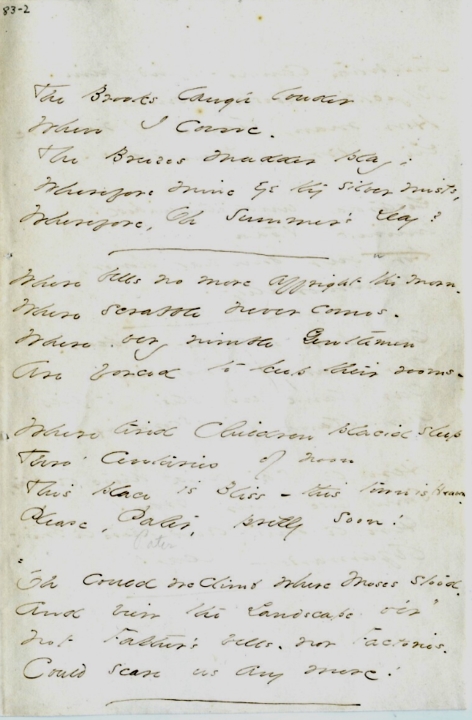 83-2
The Brooks laugh louder
When I come.
The Breezes madder play;
Wherefore mine eye thy silver mists,
Wherefore, Oh Summer's Day?
Where bells no more affright the morn.
Where scrabble never comes.
Where very nimble Gentlemen
Are forced to keep their rooms.
Where tired Children placid sleep
Thro' Centuries of noon
This place is Bliss - this town is Heaven
Please, Pater, pretty soon!
Pater
"Oh could we climb where Moses stood,
And view the Landscape o'er"
Not Father's bells. nor Factories.
Could scare us any more!